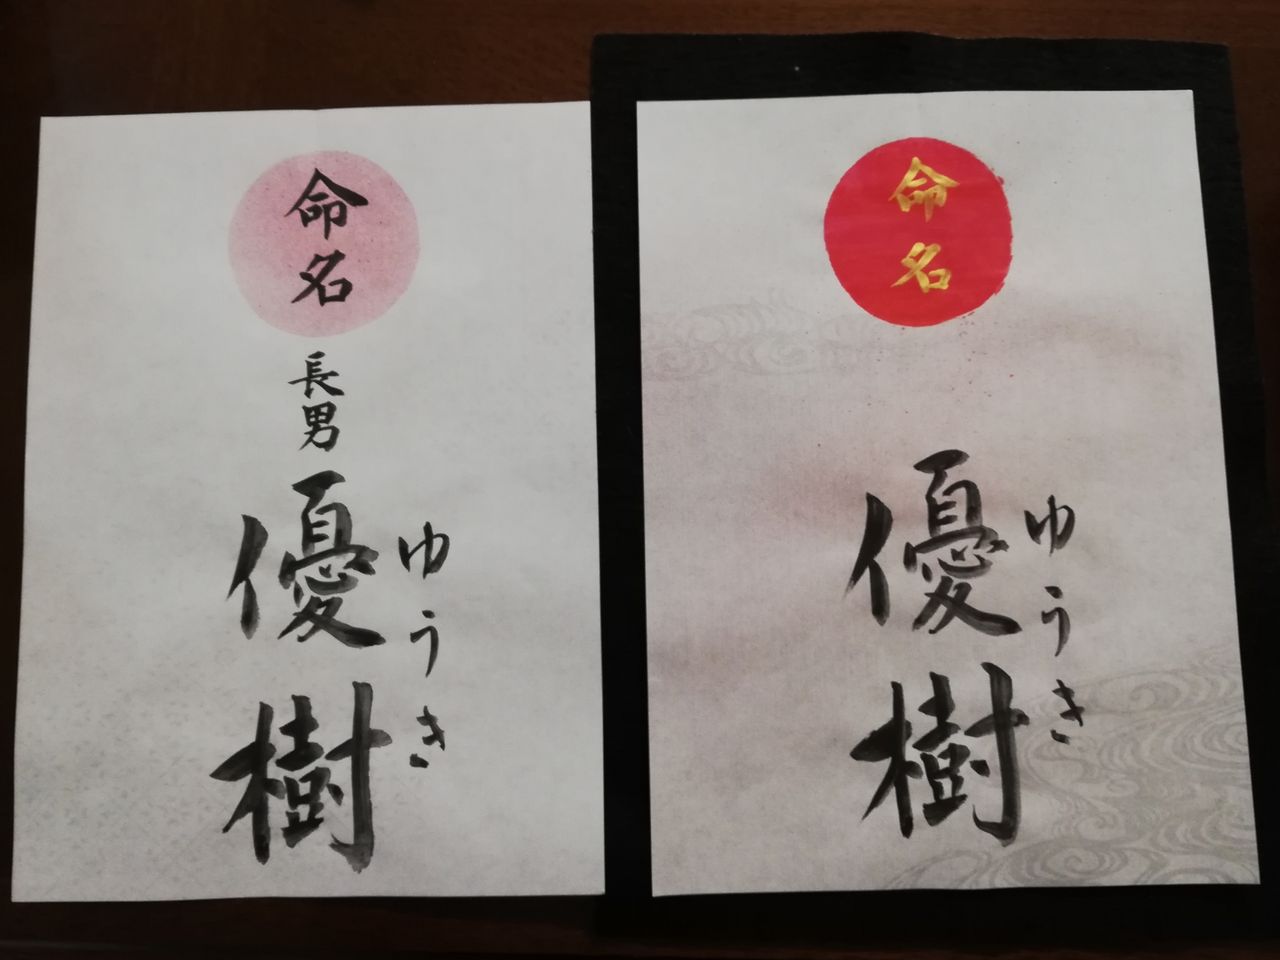 命名
長男
優樹
ゆうき
命名
優樹
ゆうき